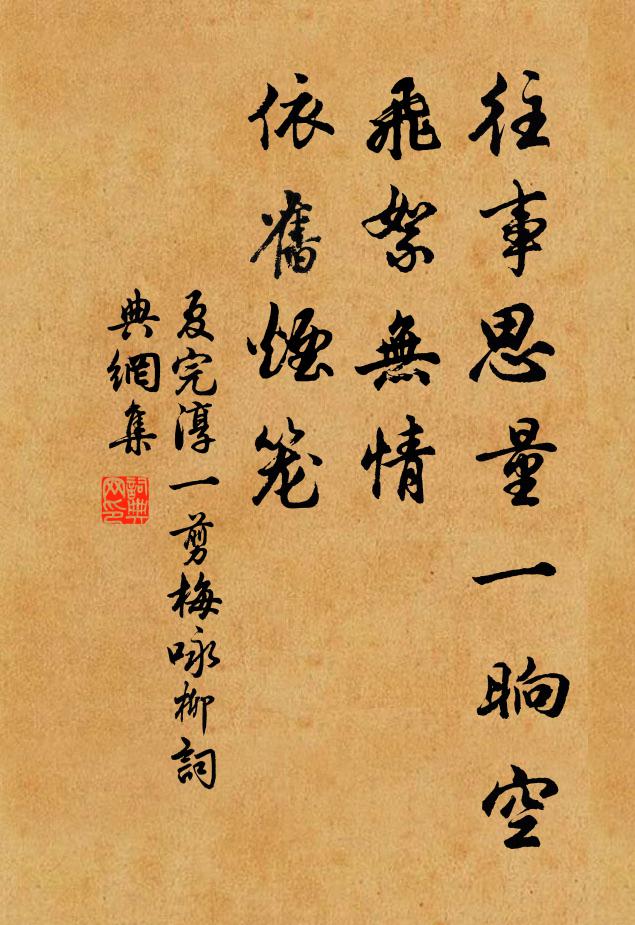 往事思量一晌空
飛絮無情
依舊煙籠
夏完淳一剪梅咏柳詞
典網集
詞典
网印